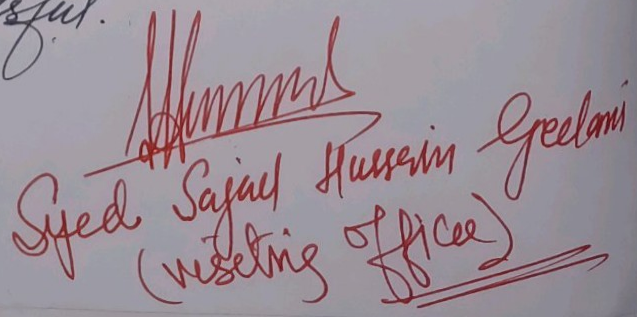 Syed Sajad Hussein Geelani
(viseting officer)